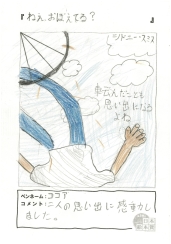 『ねぇ、おぼえてる？』
シドニー・スミス
転んだことも
思い出になる
よね
ペンネーム：ココア
コメント：二人の思い出に感動し
ました。